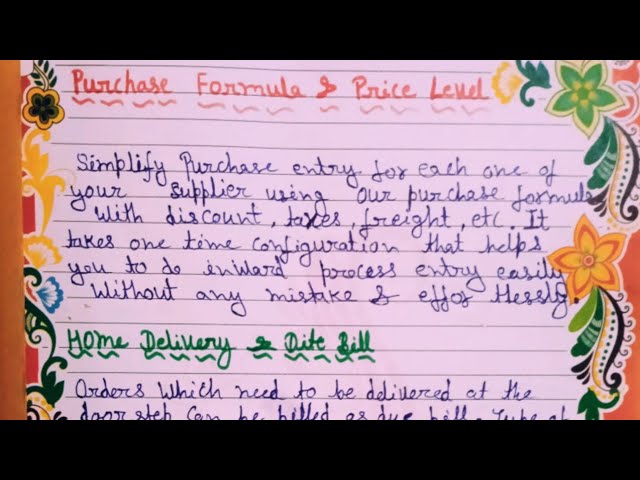 Purchase Formula & Price Level
Simplify Purchase entry for each one of
your Supplier using our purchase formula
With discount, taxes, freight, etc. It
takes one time configuration that helps
you to do inward process entry easily
Without any mistake & effortlessly.
Home Delivery & Dite Bill
Orders Which need to be delivered at the
door step Can be billed as due bill. Type of